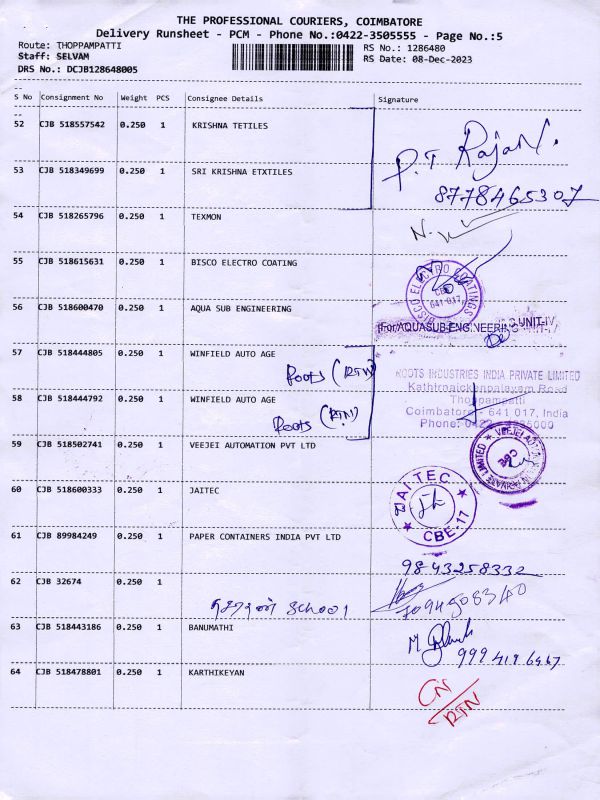 THE PROFESSIONAL COURIERS, COIMBATORE
Delivery Runsheet - PCM - Phone No.:0422-3505555 - Page No.:5
Route: THOPPAMPATTI RS No.: 1286480
Staff: SELVAM RS Date: 08-Dec-2023
DRS No.: DCJB128648005
S No Consignment No Weight PCS Consignee Details Signature
52 CJB 518557542 0.250 1 KRISHNA TETILES
P.T Rajan.
53 CJB 518349699 0.250 1 SRI KRISHNA ETXTILES
8778465307
54 CJB 518265796 0.250 1 TEXMON
55 CJB 518615631 0.250 1 BISCO ELECTRO COATING
BISCO ELECTRO COATINGS
641 017
56 CJB 518600470 0.250 1 AQUA SUB ENGINEERING
(For) AQUASUB ENGINEERING UNIT-IV
57 CJB 518444805 0.250 1 WINFIELD AUTO AGE
Roots (RTN)
ROOTS INDUSTRIES INDIA PRIVATE LIMITED
Kathirnaickenpalayam Road
58 CJB 518444792 0.250 1 WINFIELD AUTO AGE
Roots (RTN)
Thoppampatti
Coimbatore - 641 017, India
Phone: 0422
59 CJB 518502741 0.250 1 VEEJEI AUTOMATION PVT LTD
60 CJB 518600333 0.250 1 JAITEC
JAITEC
CBE-17
61 CJB 89984249 0.250 1 PAPER CONTAINERS INDIA PVT LTD
9843258332
62 CJB 32674 0.250 1
school
63 CJB 518443186 0.250 1 BANUMATHI
M
64 CJB 518478801 0.250 1 KARTHIKEYAN
CN/RTN